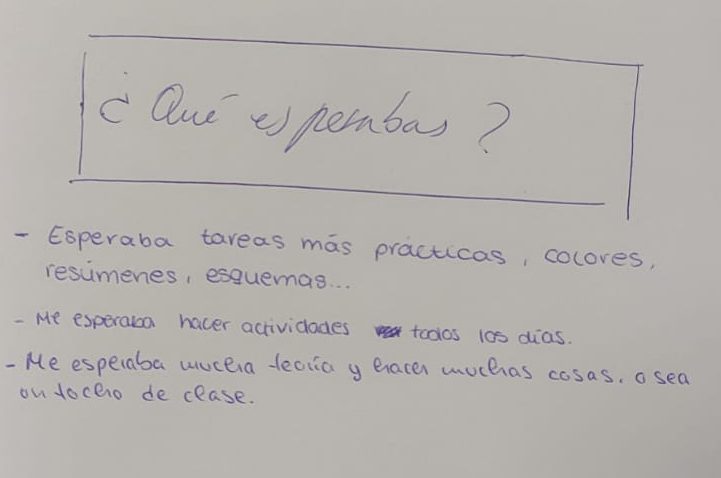 ¿Qué esperabas?
- Esperaba tareas más prácticas, colores,
resúmenes, esquemas...
- Me esperaba hacer actividades todos los días.
- Me esperaba mucha teoría y hacer muchas cosas, o sea
un tocho de clase.